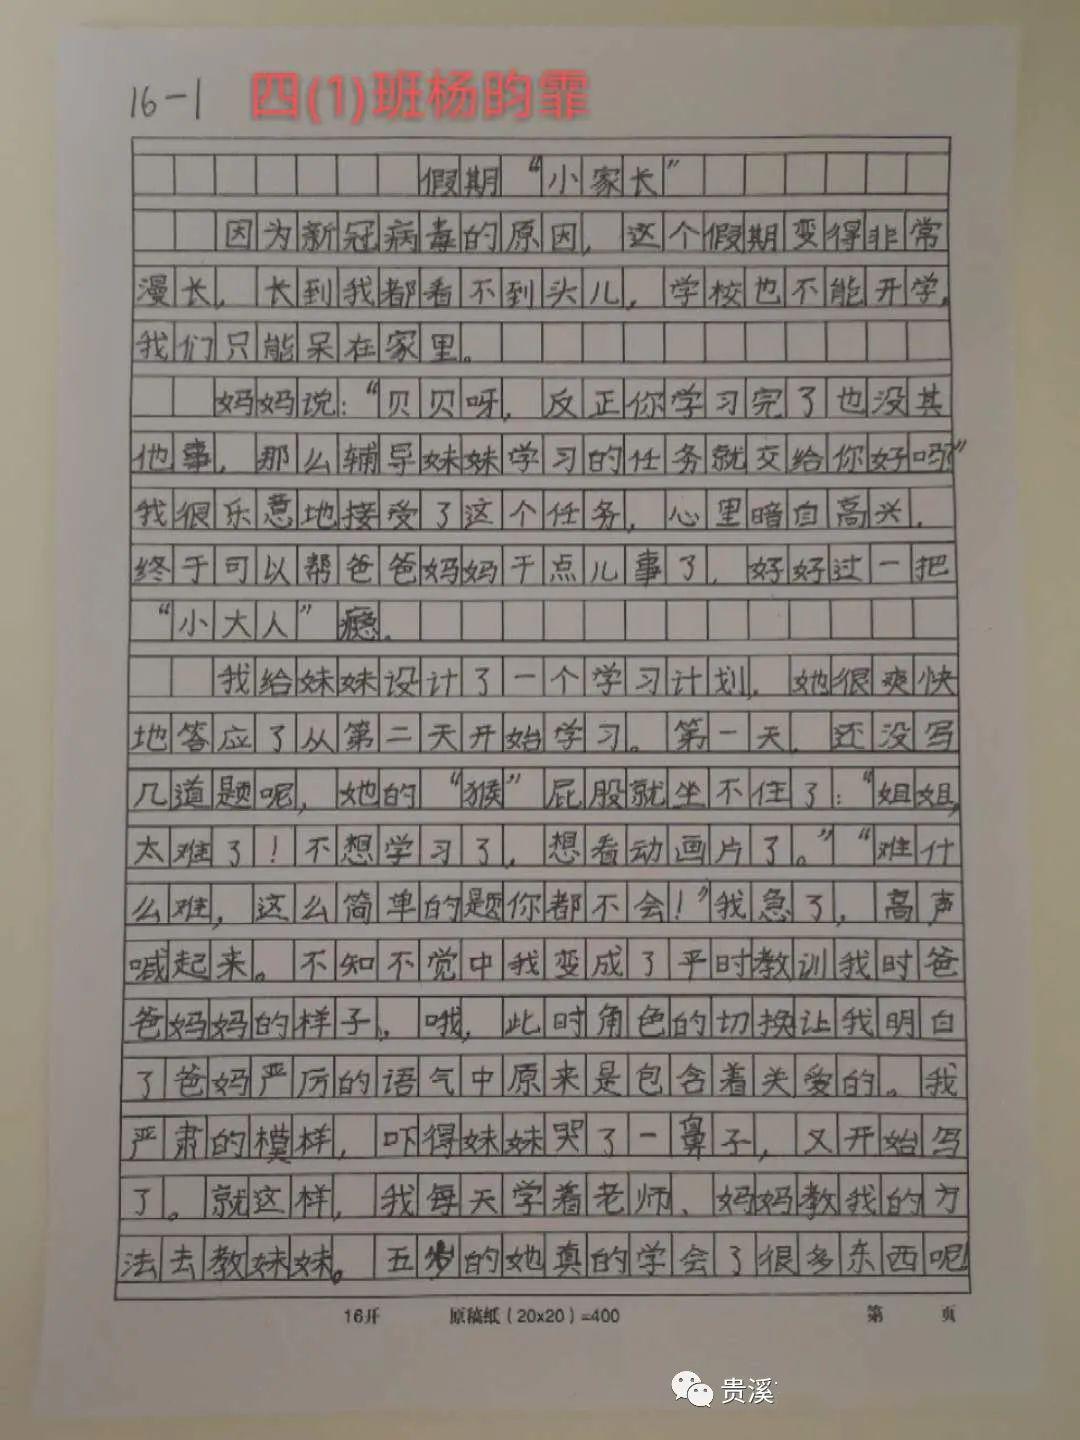 16-1 四(1)班杨昀霏
假期“小家长”
因为新冠病毒的原因，这个假期变得非常
漫长，长到我都看不到头儿，学校也不能开学，
我们只能呆在家里。
妈妈说：“贝贝呀，反正你学习完了也没其
他事，那么辅导妹妹学习的任务就交给你好吗”
我很乐意地接受了这个任务，心里暗自高兴，
终于可以帮爸爸妈妈干点儿事了，好好过一把
“小大人”瘾。
我给妹妹设计了一个学习计划，她很爽快
地答应了从第二天开始学习。第一天，还没写
几道题呢，她的“猴”屁股就坐不住了：“姐姐，
太难了！不想学习了，想看动画片了。”“难什
么难，这么简单的题你都不会！”我急了，高声
喊起来。不知不觉中我变成了平时教训我时爸
爸妈妈的样子。哦，此时角色的切换让我明白
了爸妈严厉的语气中原来是包含着关爱的。我
严肃的模样，吓得妹妹哭了一鼻子，又开始写
了。就这样，我每天学着老师、妈妈教我的方
法去教妹妹。五岁的她真的学会了很多东西呢!
16开 原稿纸（20x20）=400 第 页
贵溪